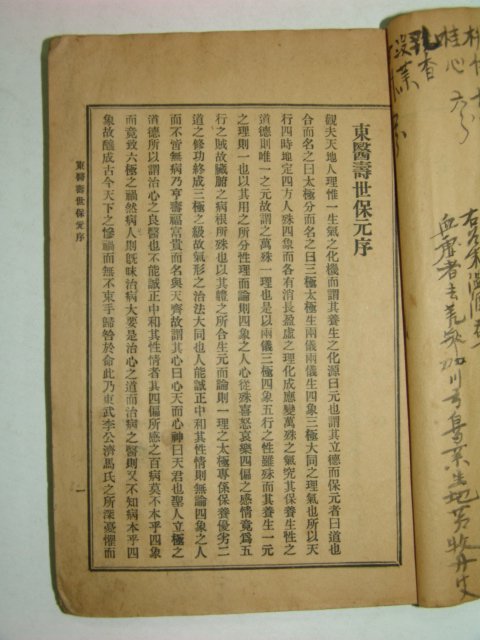 乳香
桂心
血虛者去
東醫壽世保元序
觀夫天地人理惟一生氣之化機而謂其養生之化源曰元也謂其立德而保元者曰道也
合而名之曰太極分而名之曰三極太極生兩儀兩儀生四象三極大同之理氣也所以天
行四時地定四方人殊四象而各有消長盈虛之理化成應變萬殊之氣究其保養生性之
道德則唯一之元故謂之萬殊一理也是以兩儀三極四象五行之性雖殊而其養生一元
之理則一也以其用之所分性理而論則四象之人心從殊喜怒哀樂四偏之感情竟爲五
行之賊故臟腑之病根所殊也以其軆之所合生元而論則一理之太極專係保養優劣二
道之修功終成三極之級故氣形之治法大同也人能誠正中和其性情則無論四象之人
而不皆無病乃亨壽福富貴而名與天齊故謂其心曰心天而心神曰天君也聖人立極之
道德所以謂治心之良醫也不能誠正中和其性情者其四偏所應之百病莫不本乎四象
而竟致六極之禍然病人則旣昧治病大要是治心之道而治病之醫則又不知病本乎四
象故釀成古今天下之慘禍而無不束手歸咎於命此乃東武李公濟馬氏之所深憂懼而
東醫壽世保元序 一